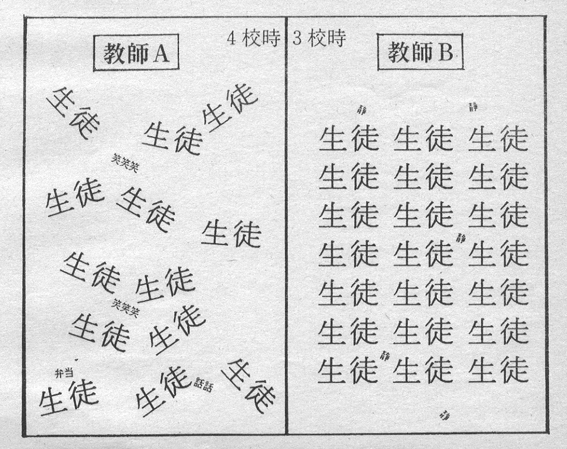 教師A
4校時
生徒
生徒
生徒
笑笑笑
生徒
生徒
生徒
生徒
生徒
笑笑笑
生徒
生徒
弁当
生徒
生徒
話話
生徒
3校時
教師B
静 静
生徒 生徒 生徒
生徒 生徒 生徒
生徒 生徒 生徒
静
生徒 生徒 生徒
生徒 生徒 生徒
生徒 生徒 生徒
静
生徒 生徒 生徒